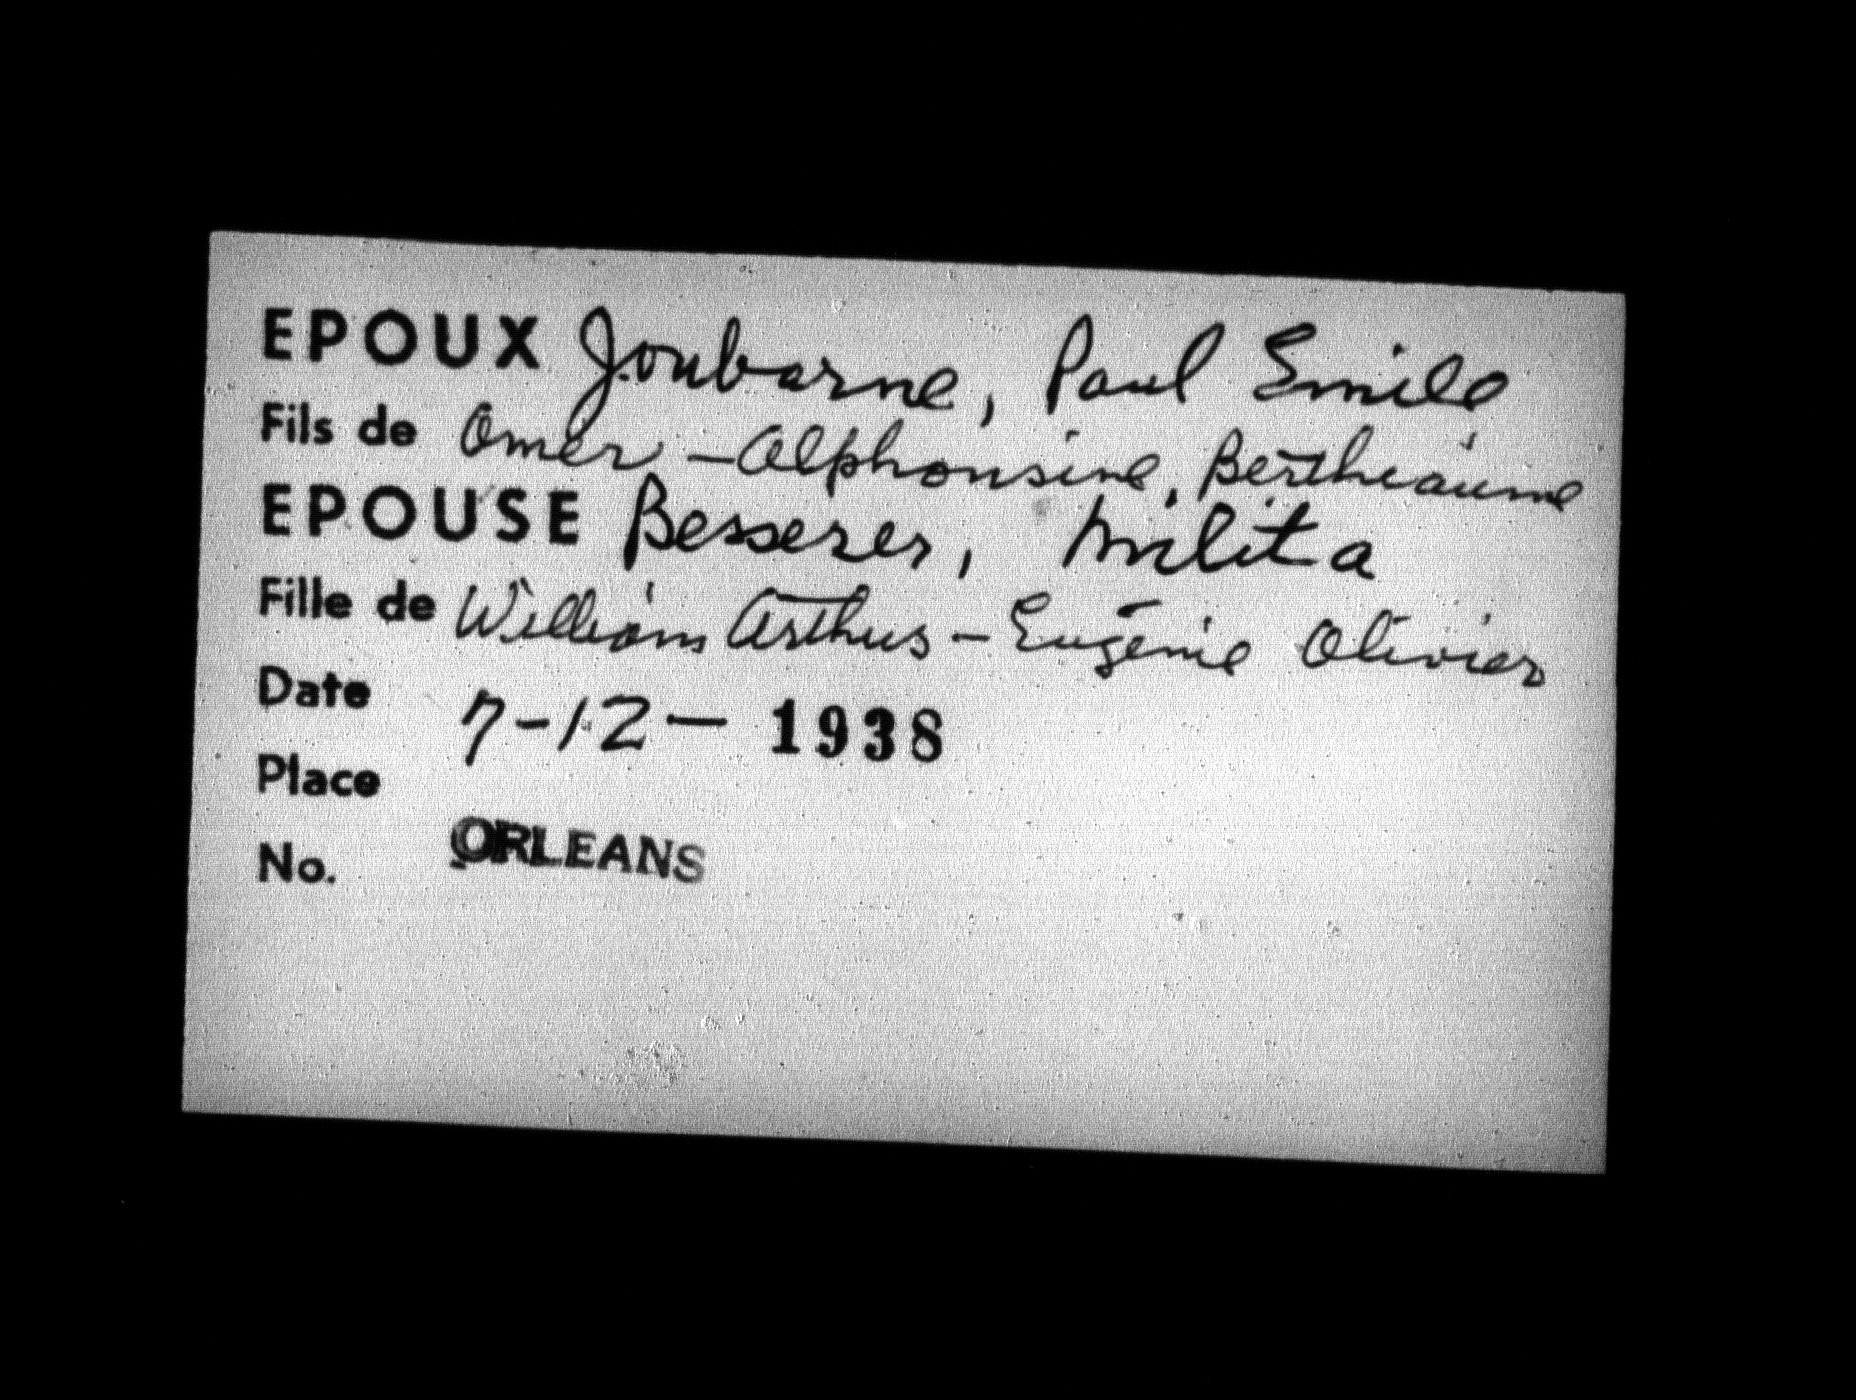 EPOUX Joubarne, Paul Emile
Fils de Omer - Alphonsine, Bertheaume
EPOUSE Besserer, Milita
Fille de William Arthur - Eugénie Olivier
Date 7-12- 1938
Place ORLEANS
No.